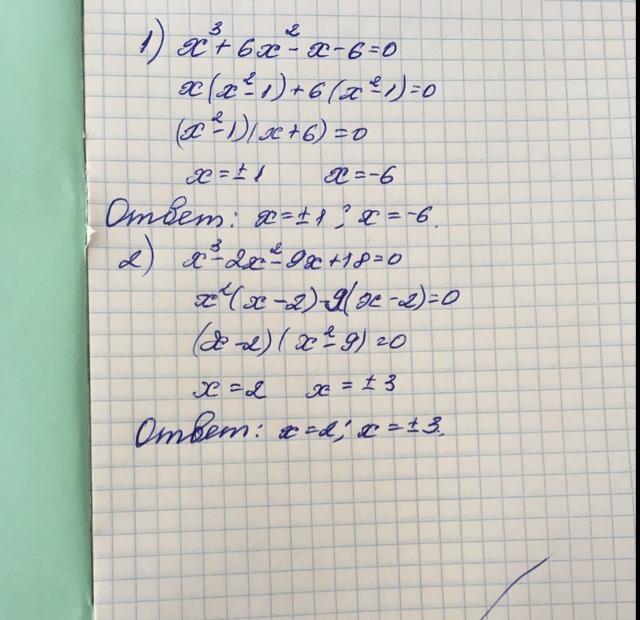 1) x³ + 6x² - x - 6 = 0
x(x² - 1) + 6(x² - 1) = 0
(x² - 1)(x + 6) = 0
x = ± 1 x = -6
Ответ: x = ± 1; x = -6.
2) x³ - 2x² - 9x + 18 = 0
x²(x - 2) - 9(x - 2) = 0
(x - 2)(x² - 9) = 0
x = 2 x = ± 3
Ответ: x = 2; x = ± 3.